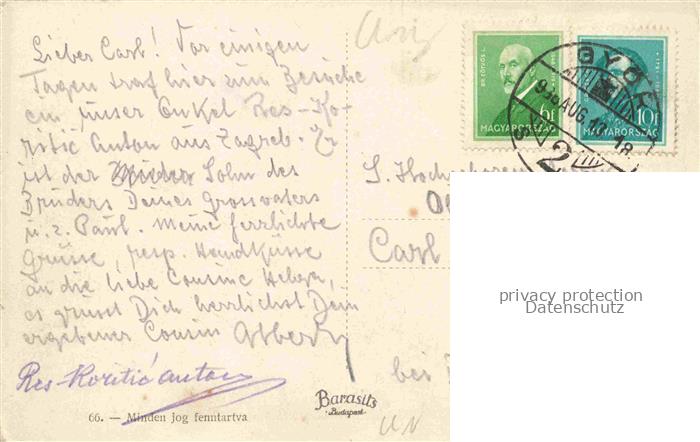 Lieber Carl! Vor einigen
Tagen traf hier zum Besuche
ein, unser Onkel Res-Ko-
ritić Anton aus Zagreb. Er
ist der Sohn des
Bruders Deines Grossvaters
u. z. Paul. Meine herzlichste
Grüsse, resp. Handküsse
an die liebe Cousine Helga,
es grüsst Dich herzlichst Dein
ergebener Cousin Albert
Res-Koritić Anton
66. — Minden jog fenntartva
Barasits
Budapest
DR EÖTVÖS L.
6f
MAGYARORSZÁG
10f
MAGYARORSZÁG
GYŐR
AUG. 10. 18
2
Carl
bei
privacy protection
Datenschutz